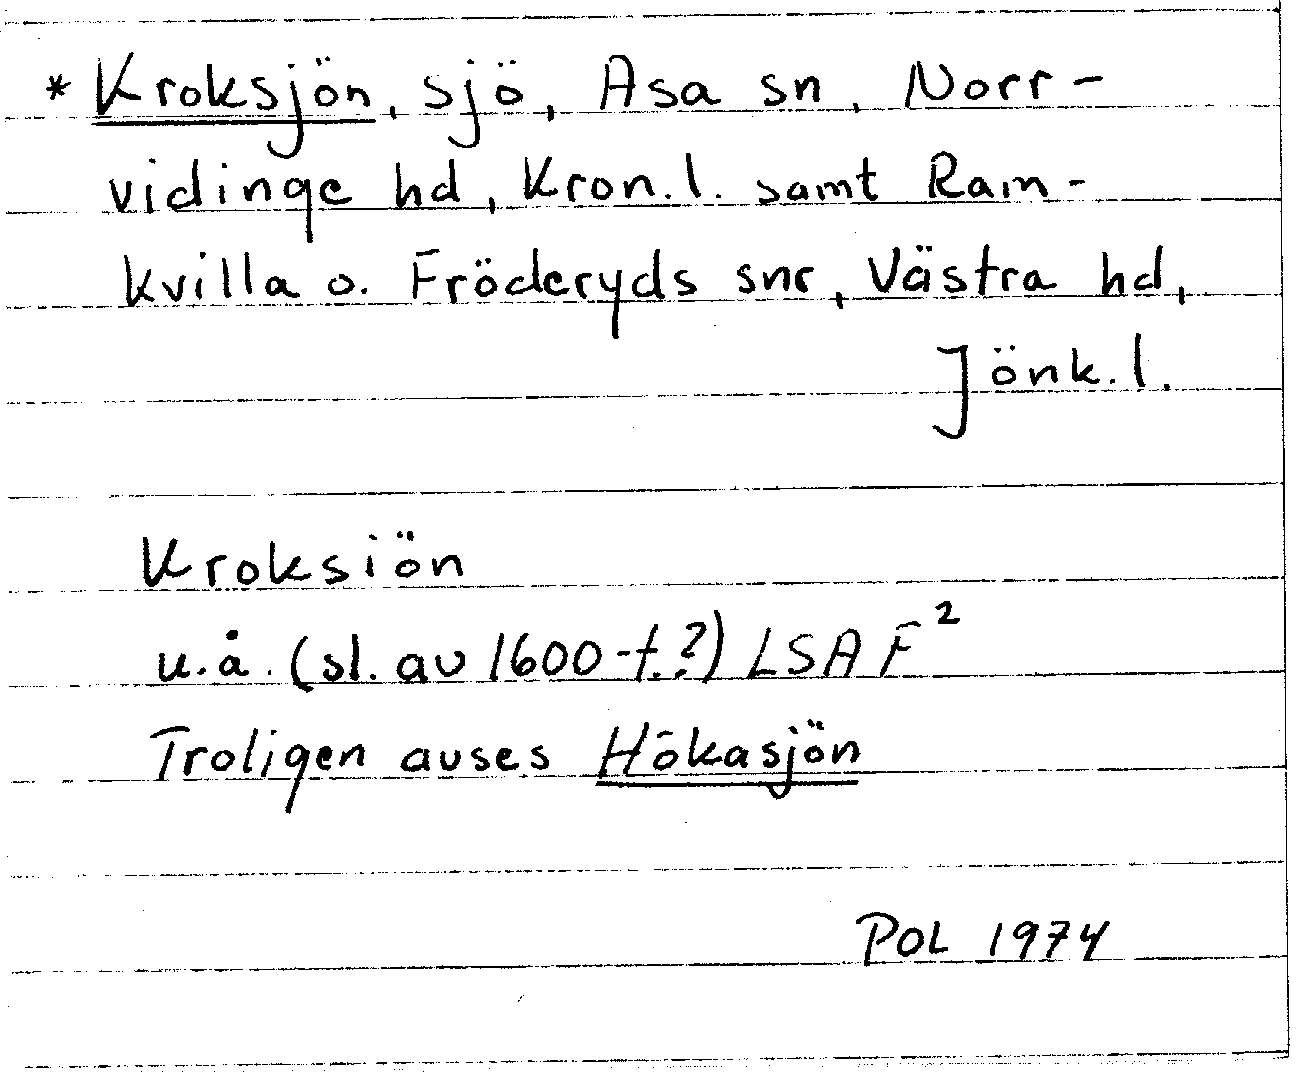 * Kroksjön, sjö, Asa sn, Norr-
vidinge hd, Kron.l. samt Ram-
kvilla o. Fröderyds snr, Västra hd,
Jönk.l.
Kroksiön
u.å. (sl. av 1600-t.?) LSA F²
Troligen avses Hökasjön
POL 1974